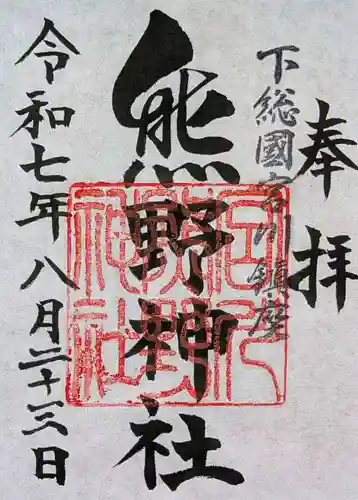 奉拝
下総國宮川鎮座
熊野神社
令和七年八月二十三日